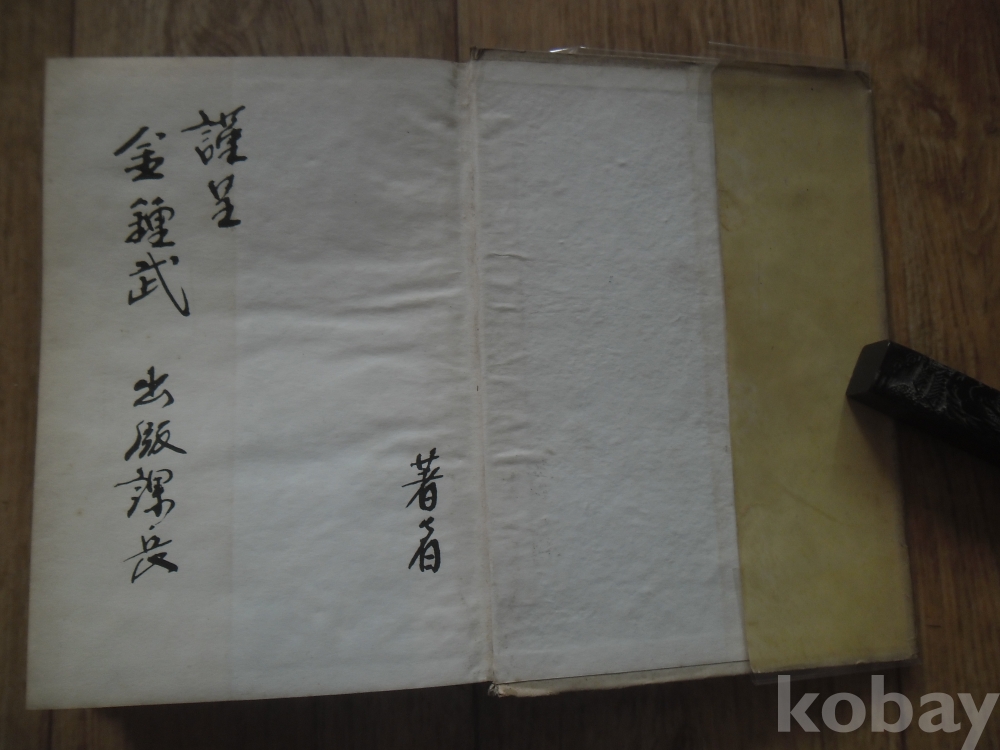 謹呈
金種武 出版課長
著者
kobay